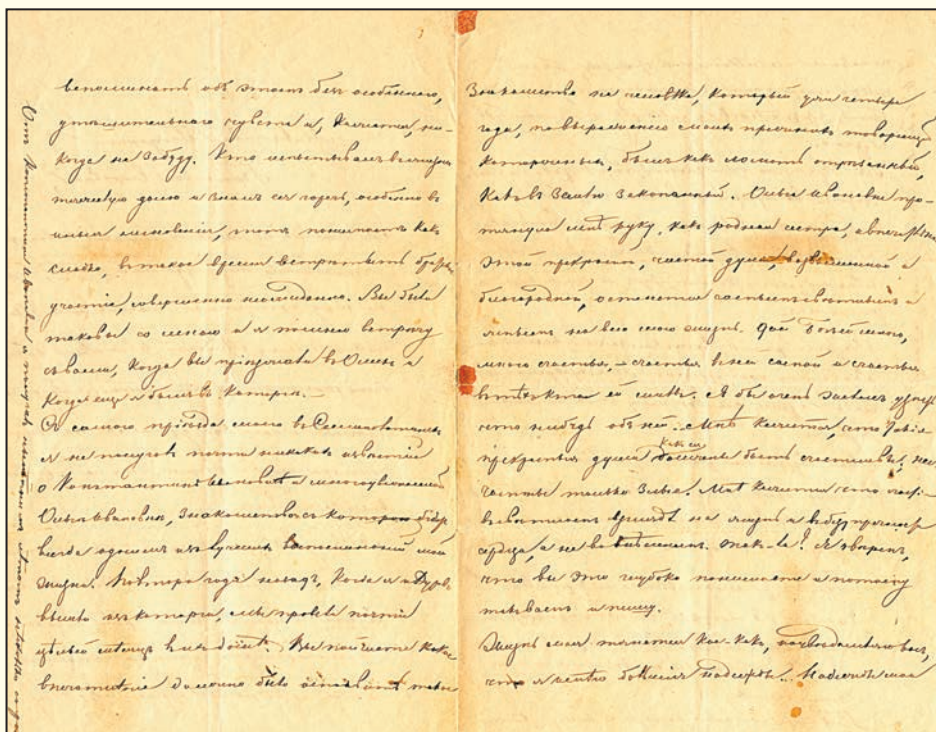 вспоминать объ этомъ безъ особеннаго,
утѣшительнаго чувства и, кажется, ни-
когда не забуду. Кто испытывалъ въ жизни
тяжелую долю и зналъ ея горечь, особенно въ
иныя мгновенія, тотъ понимаетъ какъ
сладко, въ такое время встрѣтить братское
участіе, совершенно неожиданно. Вы были
таковы со мною и я помню встрѣчу
съ вами, когда вы пріѣзжали въ Омскъ и
когда еще я былъ въ каторгѣ. —
Съ самого пріѣзда моего въ Семипалатинскъ
я не получилъ почти никакихъ извѣстій
о Константинѣ Ивановичѣ и многоуважаемой
Ольгѣ Ивановнѣ, знакомство съ которою будетъ
всегда однимъ изъ лучшихъ воспоминаній моей
жизни. Полтора года назадъ, когда я и Дуровъ
вышли изъ каторги, мы провели почти
цѣлый мѣсяцъ въ ихъ домѣ. Вы поймете какое
впечатлѣніе должно было оставить такое
знакомство на человѣка, который уже четыре
года, по выраженію моихъ прежнихъ товарищей
каторжныхъ, былъ какъ ломоть отрѣзанный,
какъ въ землю закопанный. Ольга Ивановна про-
тянула мнѣ руку, какъ родная сестра, и впечатлѣніе
этой прекрасной, чистой души, возвышенной и
благородной, останется самымъ свѣтлымъ и
яснымъ на всю мою жизнь. Дай Богъ ей много,
много счастья, — счастья въ ней самой и счастья
въ тѣхъ кто ей милъ. Я бы очень желалъ узнать
что нибудь объ ней. Мнѣ кажется, что такія
прекрасныя души какъ ея должны быть счастливы; нес-
частны только злые. Мнѣ кажется что счастье
въ свѣтломъ взглядѣ на жизнь и въ безупречности
сердца, а не во внѣшнемъ. Такъ-ли? Я увѣренъ,
что вы это глубоко понимаете и потому
такъ вамъ и пишу.
Жизнь моя тянется кое-какъ, но увѣдомляю васъ,
что я имѣю большія надежды... Надежды мои
Отъ Константина Ивановича я получилъ